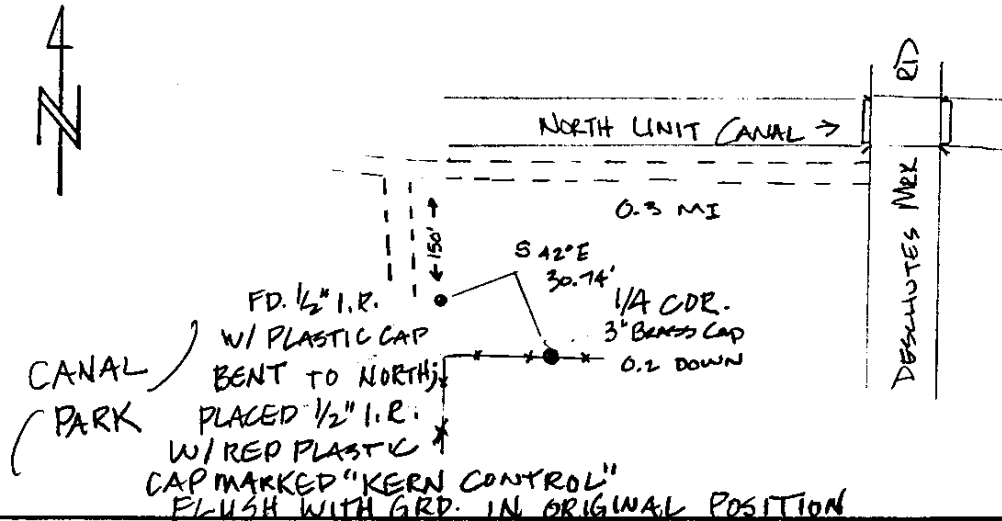 N
RD
NORTH UNIT CANAL →
DESCHUTES MRK
0.3 MI
150'
S 42°E
30.74'
1/4 COR.
3" BRASS CAP
0.2 DOWN
FD. 1/2" I.R.
W/ PLASTIC CAP
BENT TO NORTH;
PLACED 1/2" I.R.
W/ RED PLASTIC
CAP MARKED "KERN CONTROL"
FLUSH WITH GRD. IN ORIGINAL POSITION
CANAL
PARK